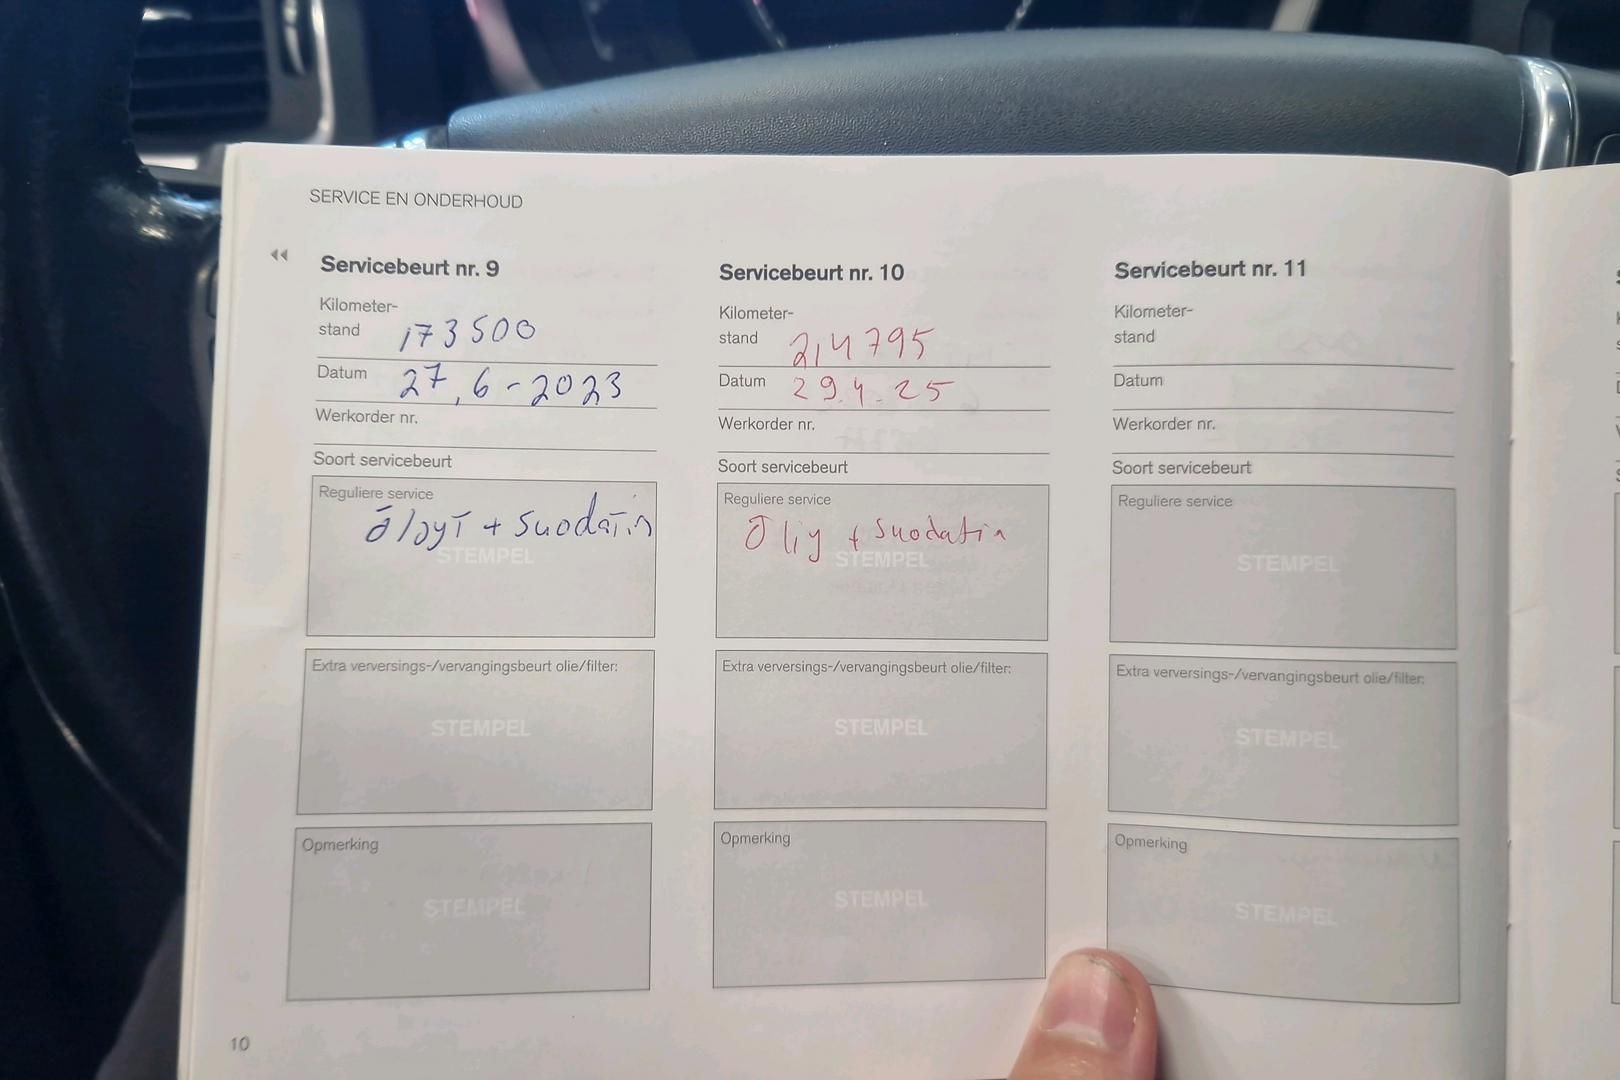 SERVICE EN ONDERHOUD
Servicebeurt nr. 9
Kilometer-
stand 173500
Datum 27.6-2023
Werkorder nr.
Soort servicebeurt
Reguliere service
öljyt + suodatin
STEMPEL
Extra verversings-/vervangingsbeurt olie/filter:
STEMPEL
Opmerking
STEMPEL
Servicebeurt nr. 10
Kilometer-
stand 214795
Datum 29.4.25
Werkorder nr.
Soort servicebeurt
Reguliere service
Öljy + suodatin
STEMPEL
Extra verversings-/vervangingsbeurt olie/filter:
STEMPEL
Opmerking
STEMPEL
Servicebeurt nr. 11
Kilometer-
stand
Datum
Werkorder nr.
Soort servicebeurt
Reguliere service
STEMPEL
Extra verversings-/vervangingsbeurt olie/filter:
STEMPEL
Opmerking
STEMPEL
10